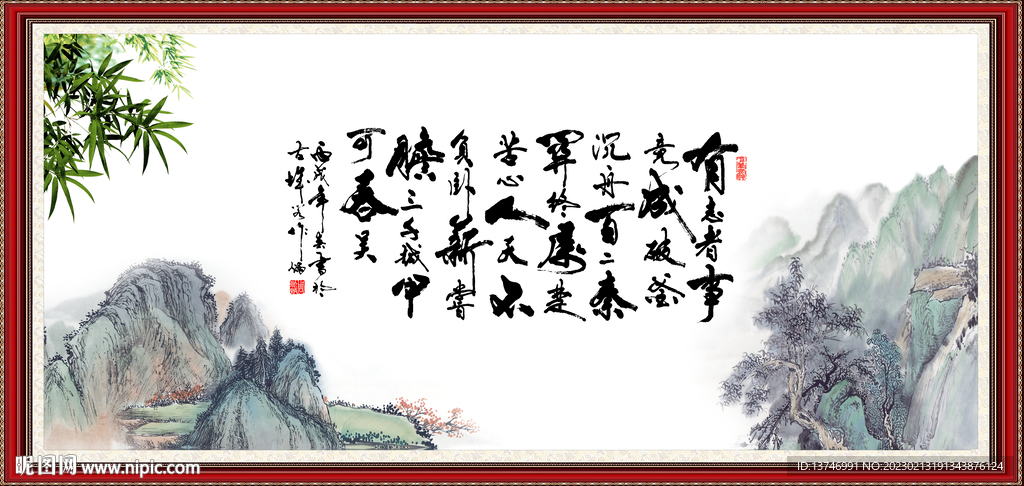 有志者事
竟成破釜
沉舟百二秦
關终属楚
苦心人天不
負卧薪嘗
膽三千越甲
可吞吴
丙戌年
昵图网 www.nipic.com
ID:13746991 NO:20230213191343876124